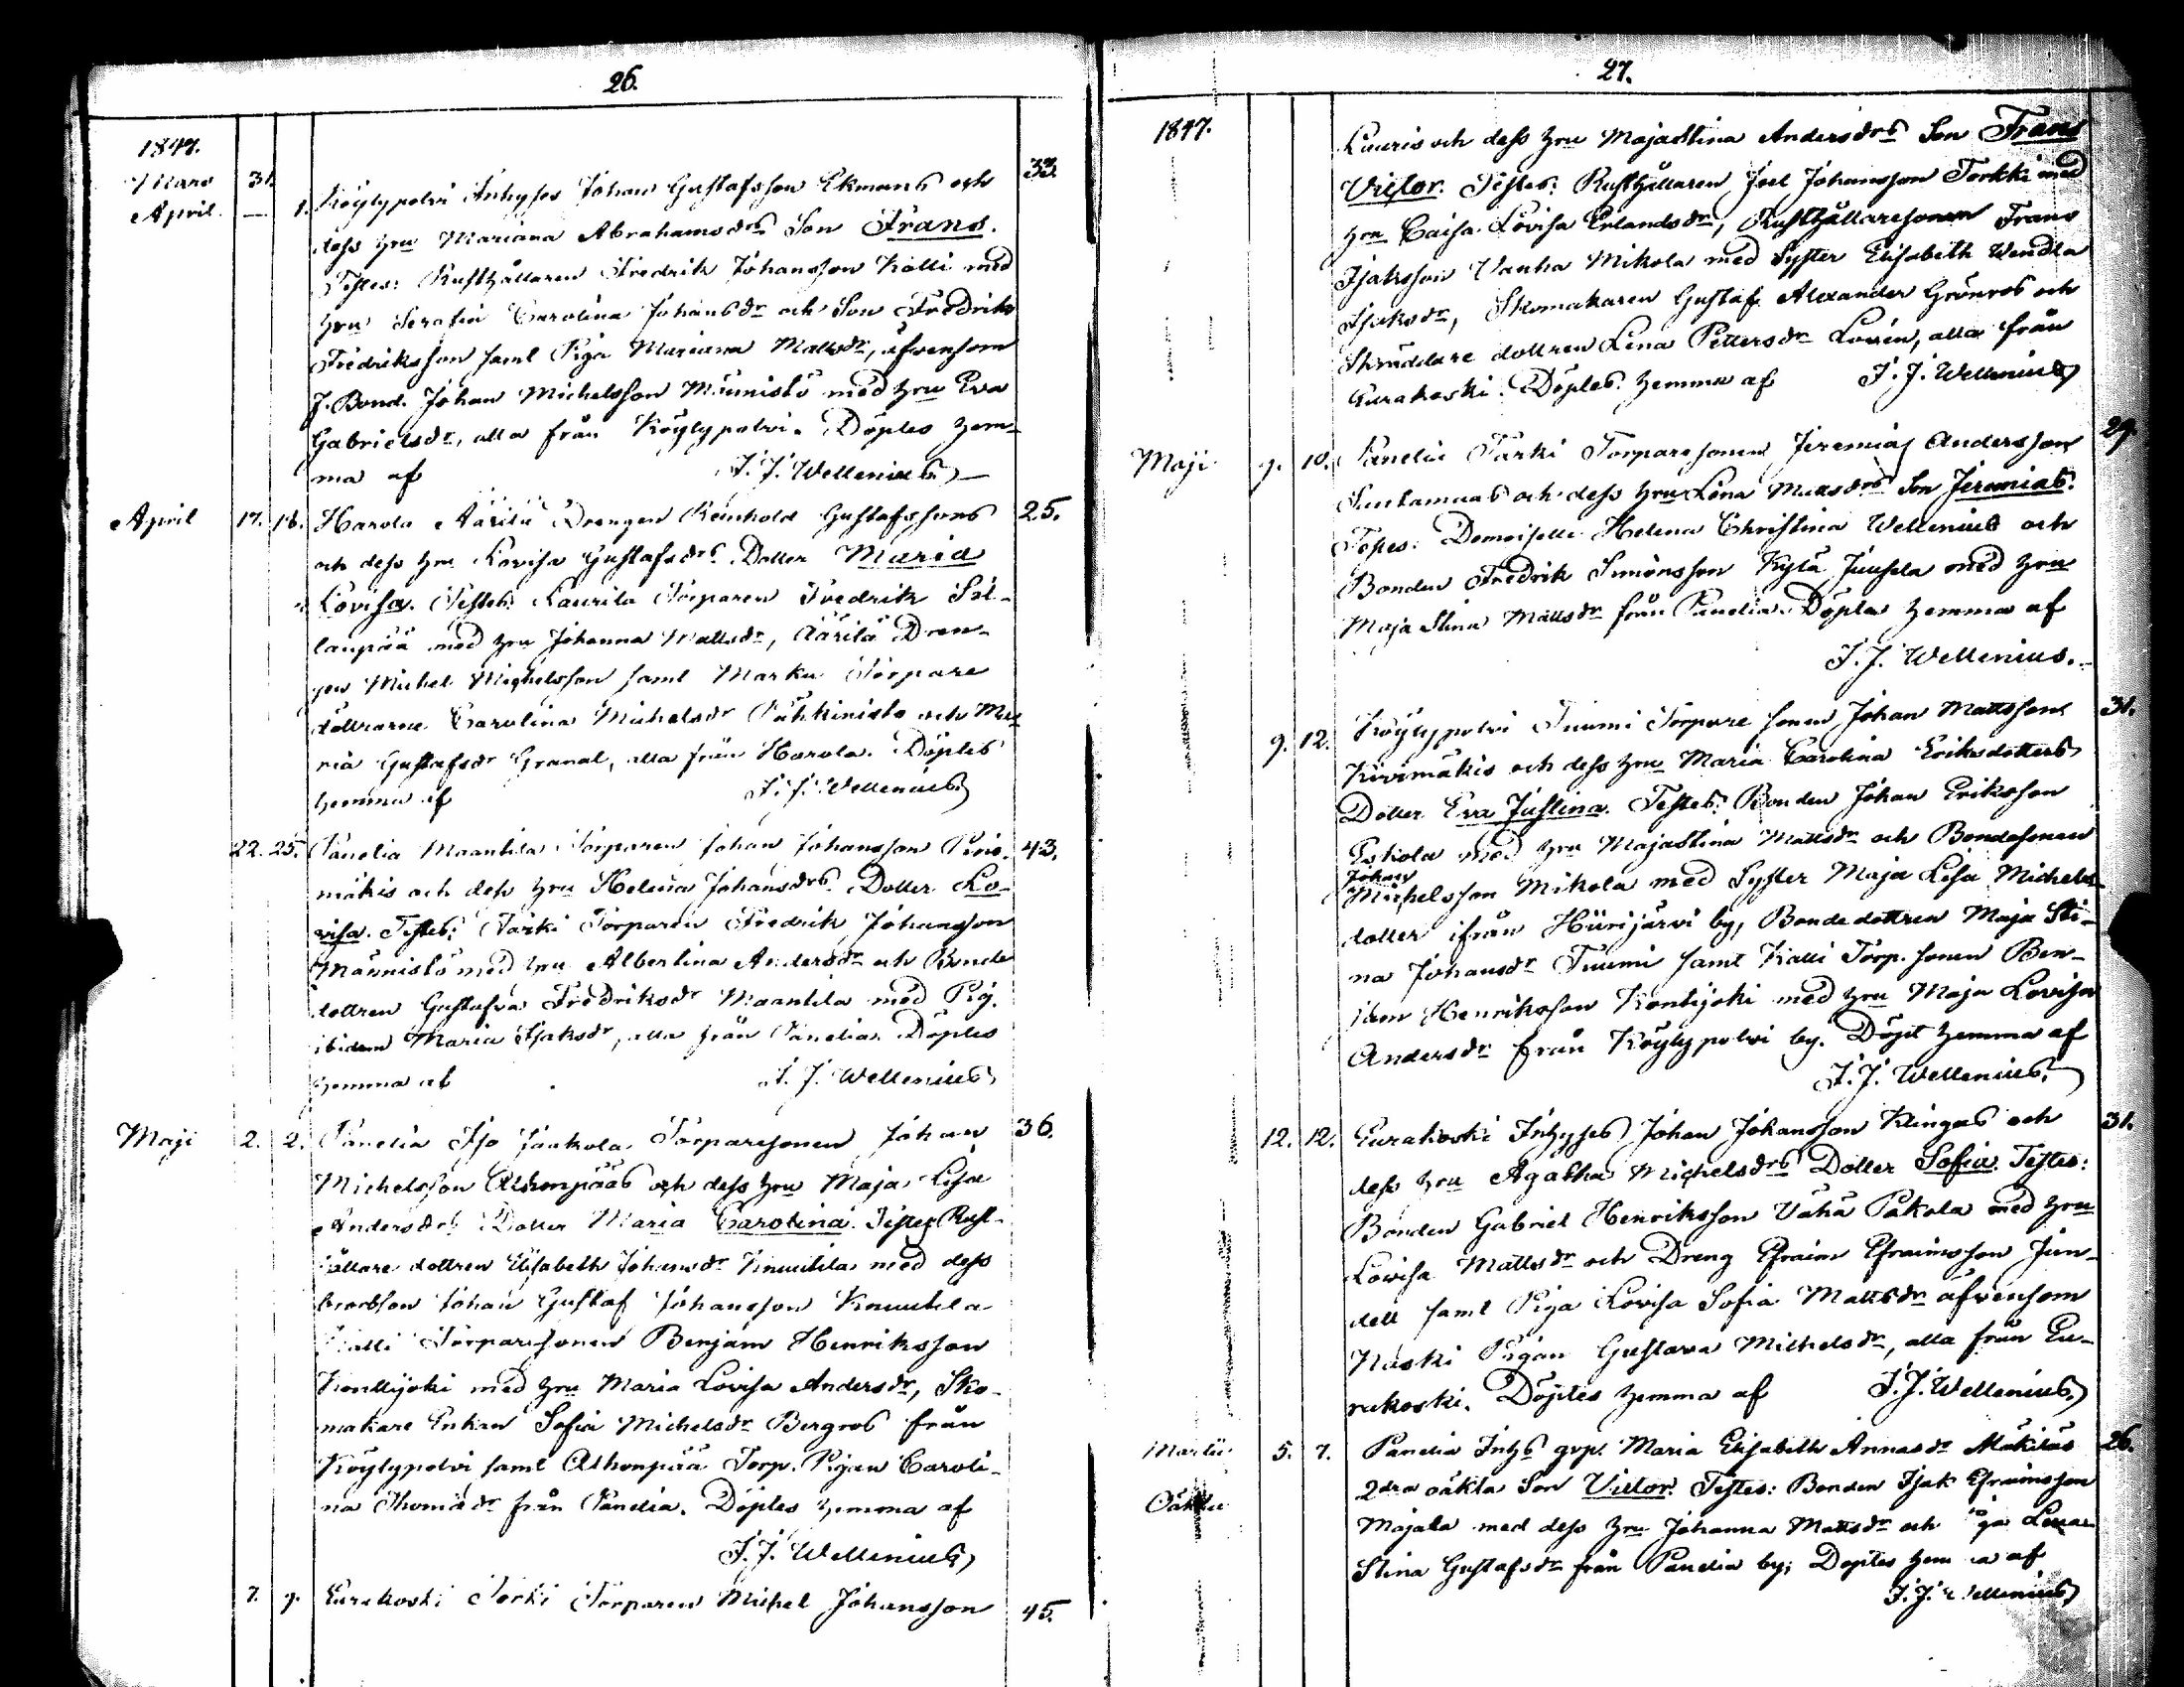 26.
1847.
Mars 31.
April — 1. Köylypolvi Inhyses Johan Gustafsson Ekmans och 33.
dess hru Mariana Abrahamsdrs Son Frans.
Testes: Rusthållaren Fredrik Johansson Kalli med
hru Serafia Carolina Johansdr och Son Fredrik
Fredriksson saml Piga Mariana Mattsdr, äfvensom
J. Bond. Johan Michelsson Männistö med hru Eva
Gabrielsdr, alla från Köylypolvi. Döptes hem-
ma af J. J. Wellenius
April 17. 18. Harola Äärilä Drengen Reinhold Gustafssons 25.
och dess hru Lovisa Gustafsdrs Dotter Maria
Lovisa. Testes: Laurila Torparen Fredrik Sil-
lanpää med hru Johanna Mattsdr, Äärilä Dren-
gen Michel Michelsson saml Marku Torpare
döttrarne Carolina Michelsdr Pähkinistö och Ma-
ria Gustafsdr Granat, alla från Harola. Döptes
hemma af J. J. Wellenius
22. 25. Panelia Maantila Torparen Johan Johansson 43.
mäkis och dess hru Helena Johansdrs Dotter Lo-
visa. Testes: Tarki Torparen Fredrik Johansson
Männistö med hru Albertina Andersdr och Bonde
dottren Gustafva Fredriksdr Maantila med Pig.
ibidem Maria Isaksdr, alla från Panelia. Döptes
hemma af J. J. Wellenius
Maji 2. 2. Panelia Iso Jaakola Torparesonen Johan 36.
Michelsson Alhonpääs och dess hru Maja Lisa
Andersdrs Dotter Maria Carolina. Testes Rust-
hållare dottren Elisabeth Johansdr Knuutila med dess
brorson Johan Gustaf Johansson Knuutila
Kalli Torparesonen Benjam Henriksson
Konttijoki med hru Maria Lovisa Andersdr, Sko-
makare Enkan Sofia Michelsdr Bergros från
Köylypolvi saml Alhonpää Torp. Pigan Caroli-
na Thomasdr från Panelia. Döptes hemma af
J. J. Wellenius
7. 9. Eurakoski Torki Torparen Michel Johansson 45.
27.
1847.
Lauris och dess hru Majastina Andersdrs Son Frans
Victor. Testes: Rusthållaren Joel Johansson Torkki med
hru Caisa Lovisa Erlandsdr, Rusthållaresonen Frans
Isaksson Vanha Mikola med Syster Elisabeth Wendla
Isaksdr, Skomakaren Gustaf Alexander Grönros och
Skräddare dottren Lena Pettersdr Lovén, alla från
Eurakoski. Döptes hemma af J. J. Wellenius
Maji 9. 10. Panelia Tarki Torparesonen Jeremias Andersson 29.
Santamaas och dess hru Lena Mattsdrs Son Jeremias.
Testes: Demoiselle Helena Christina Wellenius och
Bonden Fredrik Simonsson Kylä Juusela med hru
Maja Stina Mattsdr från Panelia. Döptes hemma af
J. J. Wellenius.
9. 12. Köylypolvi Tuomi Torpare sonen Johan Mattssons 31.
Kivimäkis och dess hru Maria Carolina Eriksdotters
Dotter Eva Justina. Testes: Bonden Johan Eriksson
Eskola med hru Majastina Mattsdr och Bondesonen
Johan
Michelsson Mikola med Syster Maja Lisa Michels-
dotter ifrån Hiirijärvi by, Bondedottren Maja Sti-
na Johansdr Tuomi samt Kalli Torp. sonen Ben-
jam Henriksson Kontijoki med hru Maja Lovisa
Andersdr från Köylypolvi by. Döpt hemma af
J. J. Wellenius.
12. 12. Eurakoski Inhyses Johan Johansson Klingas och 31.
dess hru Agatha Michelsdrs Dotter Sofia. Testes:
Bonden Gabriel Henriksson Vähä Pakola med hru
Lovisa Mattsdr och Dreng Efraim Efraimsson Jun-
dell saml Piga Lovisa Sofia Mattsdr äfvensom
Naski Pigan Gustava Michelsdr, alla från Eu-
rakoski. Döptes hemma af J. J. Wellenius
Martii 5. 7. Panelia Inhs qvp. Maria Elisabeth Annasdr Mäkiläs 26.
Oäkta 2dra oäkta Son Victor. Testes: Bonden Isak Efraimsson
Majala med dess hru Johanna Mattsdr och Piga Lena
Stina Gustafsdr från Panelia by; Döptes hemma af
J. J. Wellenius